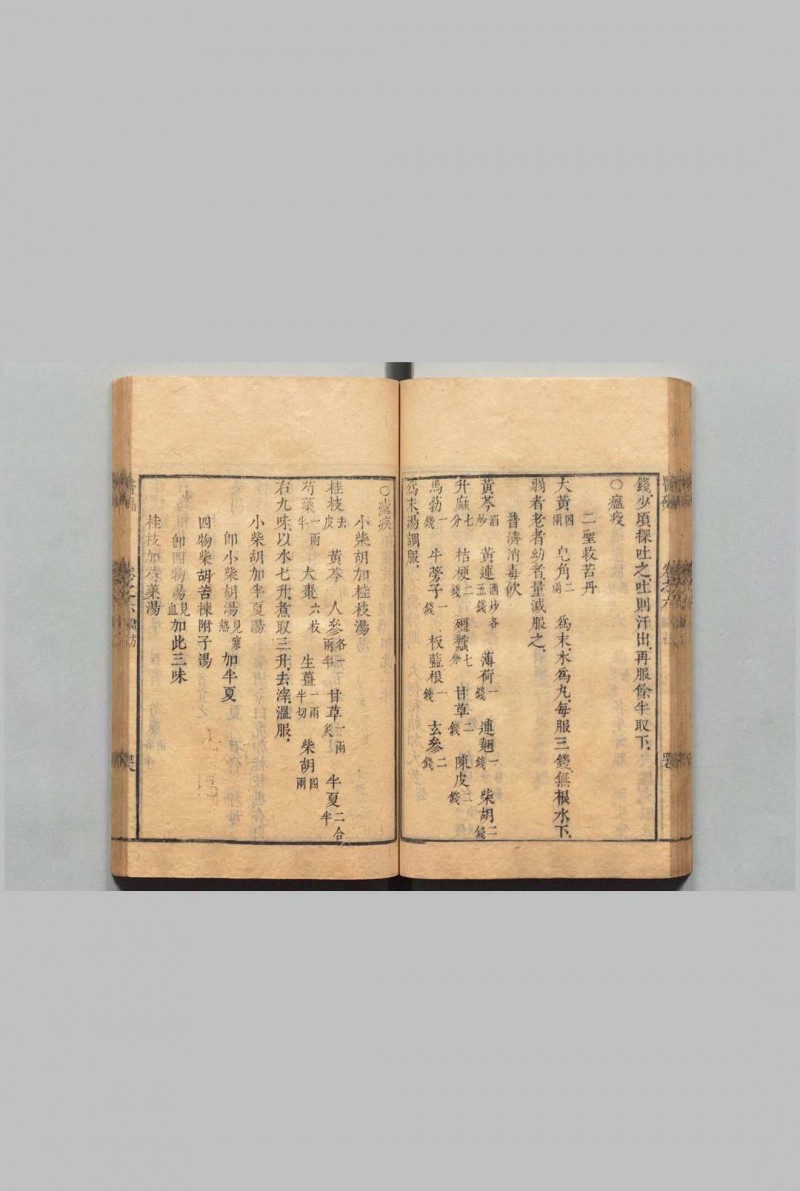 錢少頃探吐之吐則汗出再服餘半取下
○瘟疫
二聖救苦丹
大黃四兩 皂角二兩 爲末水爲丸每服三錢無根水下
弱者老者幼者量減服之
普濟消毒飲
黃芩酒炒 黃連酒炒各五錢 薄荷一錢 連翹一錢 柴胡二錢
升麻七分 桔梗二錢 殭蠶七分 甘草二錢 陳皮二錢
馬勃一錢 牛蒡子一錢 板藍根一錢 玄參二錢
爲末湯調服
○瘟疾
小柴胡加桂枝湯
桂枝去皮 黃芩 人參各一兩半 甘草一兩炙 半夏二合半
芍藥一兩半 大棗六枚 生薑一兩半切 柴胡四兩
右九味以水七升煮取三升去滓溫服
小柴胡加半夏湯
卽小柴胡湯見寒熱加半夏
四物柴胡苦楝附子湯
卽四物湯見血加此三味
桂枝加芍藥湯
卷之六